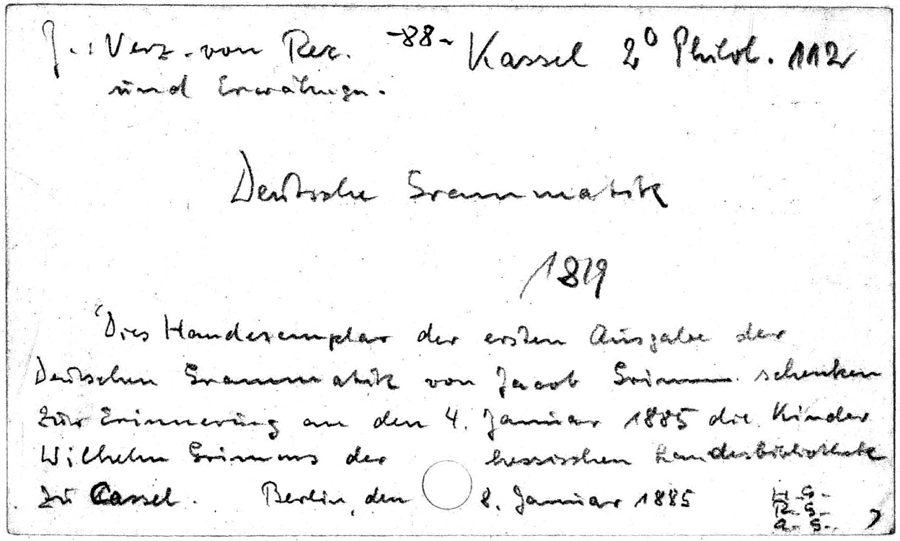 J.: Verz. von Rez. -88- Kassel 2° Philol. 112
und Erwähngn.
Deutsche Grammatik
1819
"Dies Handexemplar der ersten Ausgabe der
Deutschen Grammatik von Jacob Grimm schenken
zur Erinnerung an den 4. Januar 1885 die Kinder
Wilhelm Grimms der hessischen Landesbibliothek
zu Cassel. Berlin, den 8. Januar 1885
H. G.
R. G.
A. G. "